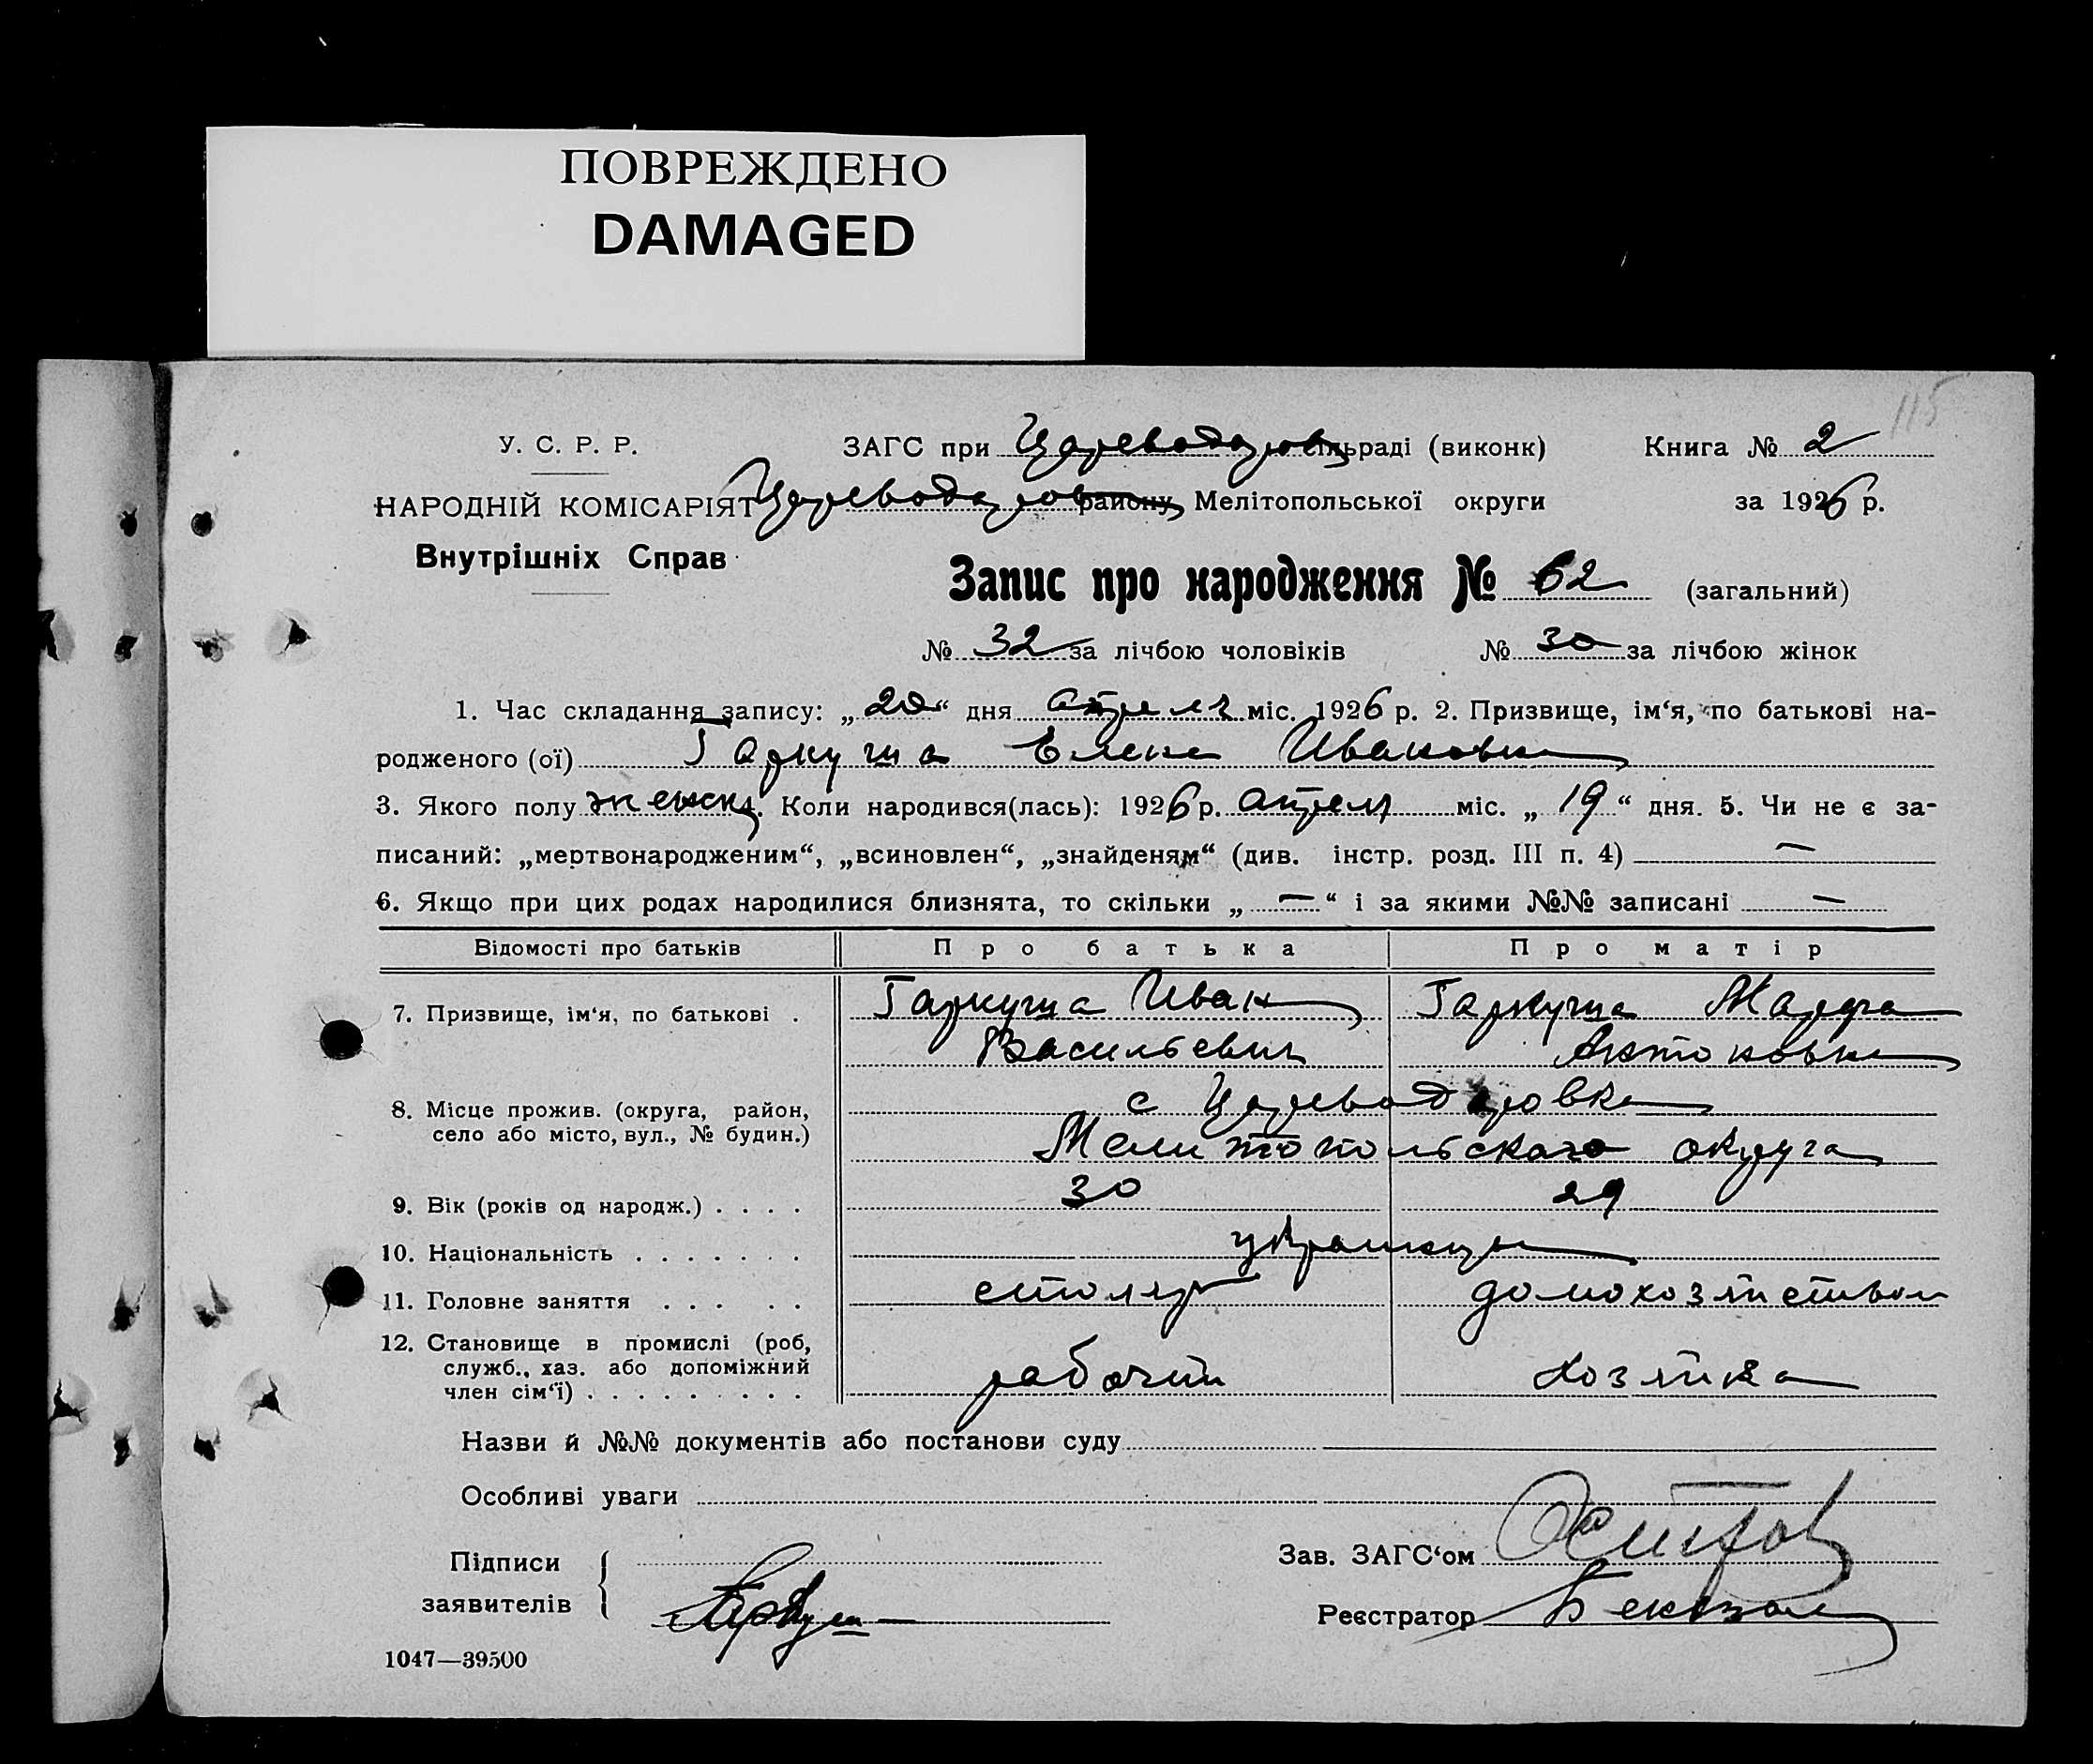 ПОВРЕЖДЕНО
DAMAGED
115
У. С. Р. Р. ЗАГС при Цареводаровск сільраді (виконк) Книга № 2
НАРОДНІЙ КОМІСАРІЯТ Цареводаровск району Мелітопольської округи за 1926 р.
Внутрішніх Справ
Запис про народження № 62 (загальний)
№ 32 за лічбою чоловіків № 30 за лічбою жінок
1. Час складання запису: „20“ дня апреля міс. 1926 р. 2. Призвище, ім‘я, по батькові на-
родженого (ої) Гаркуша Елена Ивановна
3. Якого полу женск. Коли народився(лась): 1926 р. апреля міс. „19“ дня. 5. Чи не є за-
писаний: „мертвонародженим“, „всиновлен“, „знайденям“ (див. інстр. розд. III п. 4) —
6. Якщо при цих родах народилися близнята, то скільки „—“ і за якими №№ записані —
Відомості про батьків Про батька Про матір
7. Призвище, ім‘я, по батькові . Гаркуша Иван Гаркуша Марфа
Васильевич Антоновна
8. Місце прожив. (округа, район, с Цареводаровка
село або місто, вул., № будин.) Мелитопольского округа
9. Вік (років од народж.) . . . . 30 29
10. Національність . . . . . . . украинцы
11. Головне заняття . . . . . столяр домохозяйством
12. Становище в промислі (роб,
служб., хаз. або допоміжний рабочий хозяйка
член сім‘ї) . . . . . . . . .
Назви й №№ документів або постанови суду
Особливі уваги
Підписи Зав. ЗАГС‘ом Осипов
заявителів Гаркуша Реєстратор
1047—39500